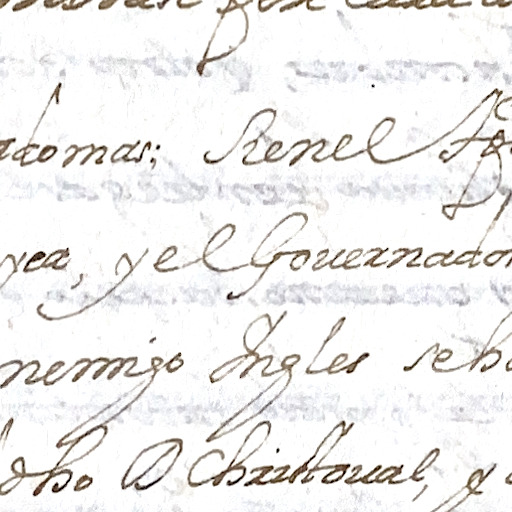 adomas; Kenel
yea, y el Gouernador
nemigo Ingles seha
dho D Christoual, y